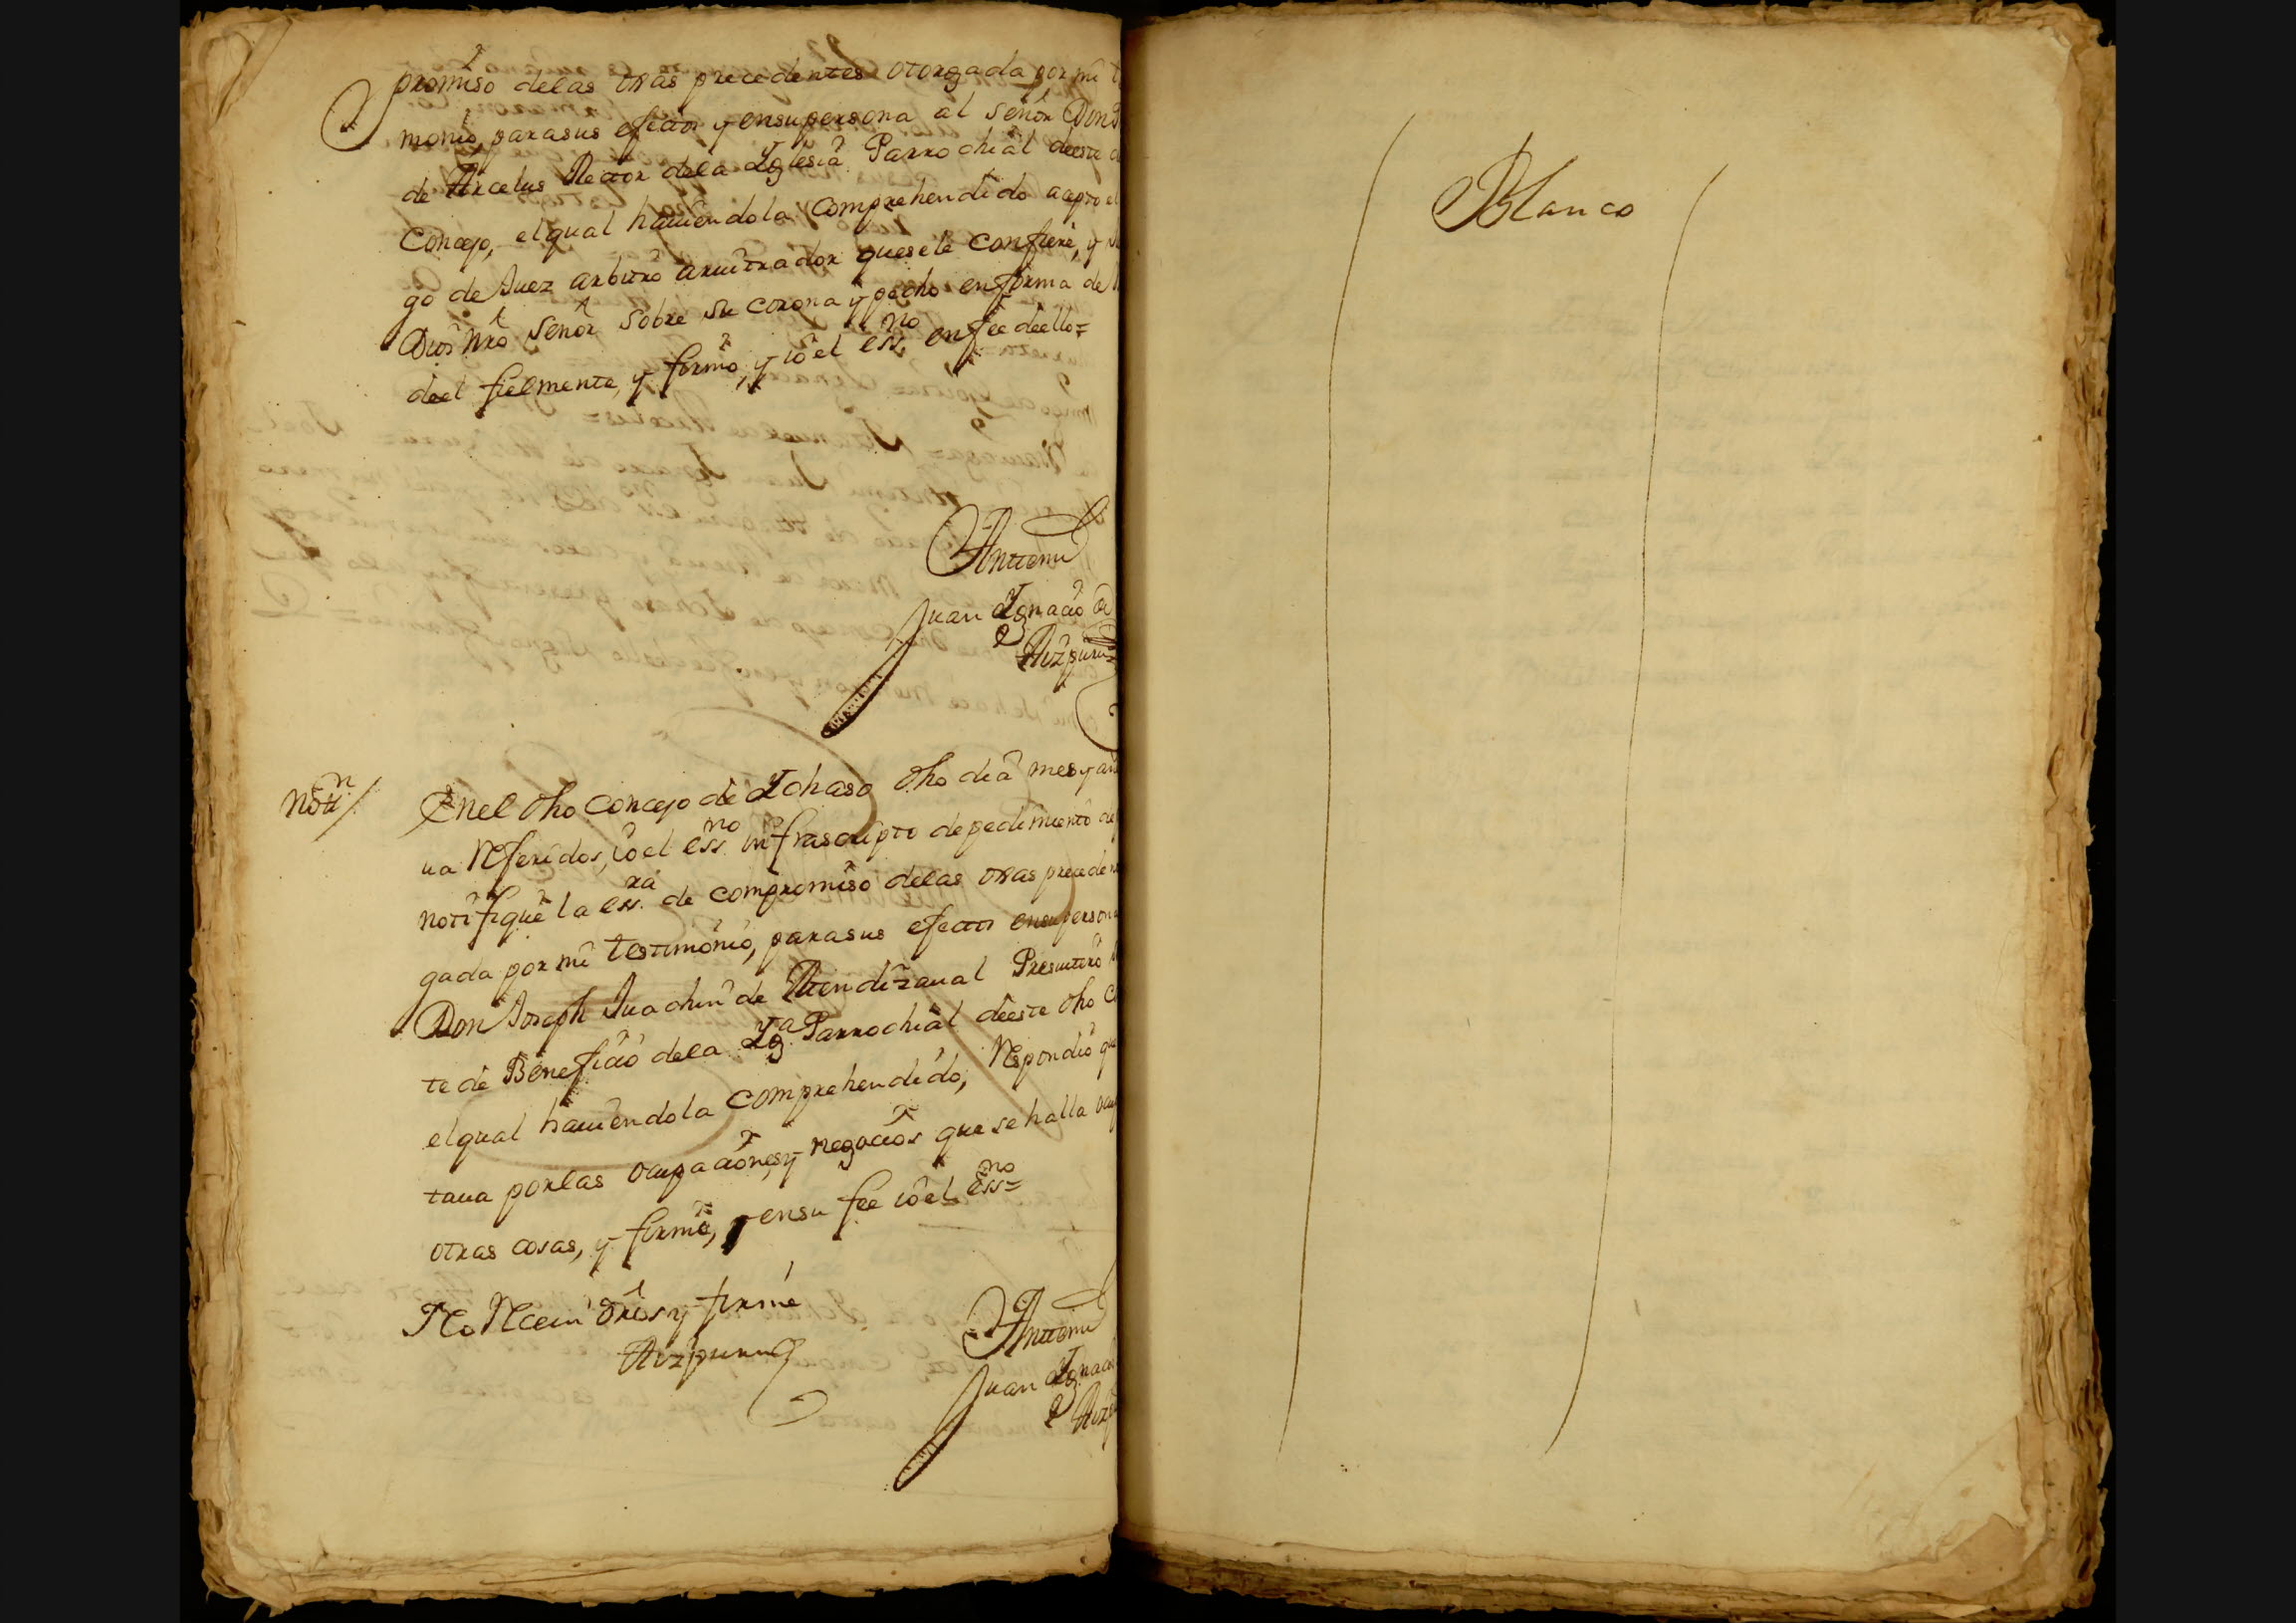 promiso delas oras precedentes otorgada por mi
monio, parasus efectos y ensupersona al señor Don
de Arcelus Rector dela Yglesia Parrochial deeste
Concejo, elqual hauiendola comprehendido acepto el
go de Juez arbitro aruitrador quesele confiere, y
Dios nro señor sobre su corona y pecho enforma de
deel fielmente, y firmo, y io el essno enfee deello=
Anttemi
Juan Ygnacio de
Aizpuru
Notin/
Enel dho concejo de Ychaso dho dia mes y
ua Referidos, io el essno infrascripto depedimiento de
notifique la essra de compromiso delas oras preceden
gada por mi testimonio, parasus efectos ensupersona
Don Joseph Juachin de Mendizaual Presuitero
te de Beneficio dela Ygª Parrochial deeste dho
elqual hauiendola comprehendido, Respondio que
taua porlas ocupaciones, y negocios que se halla
otras cosas, y firmo, y ensu fee io el Essno=
firme
Aizpuru
Anttemi
Juan Ygnacio
Blanco